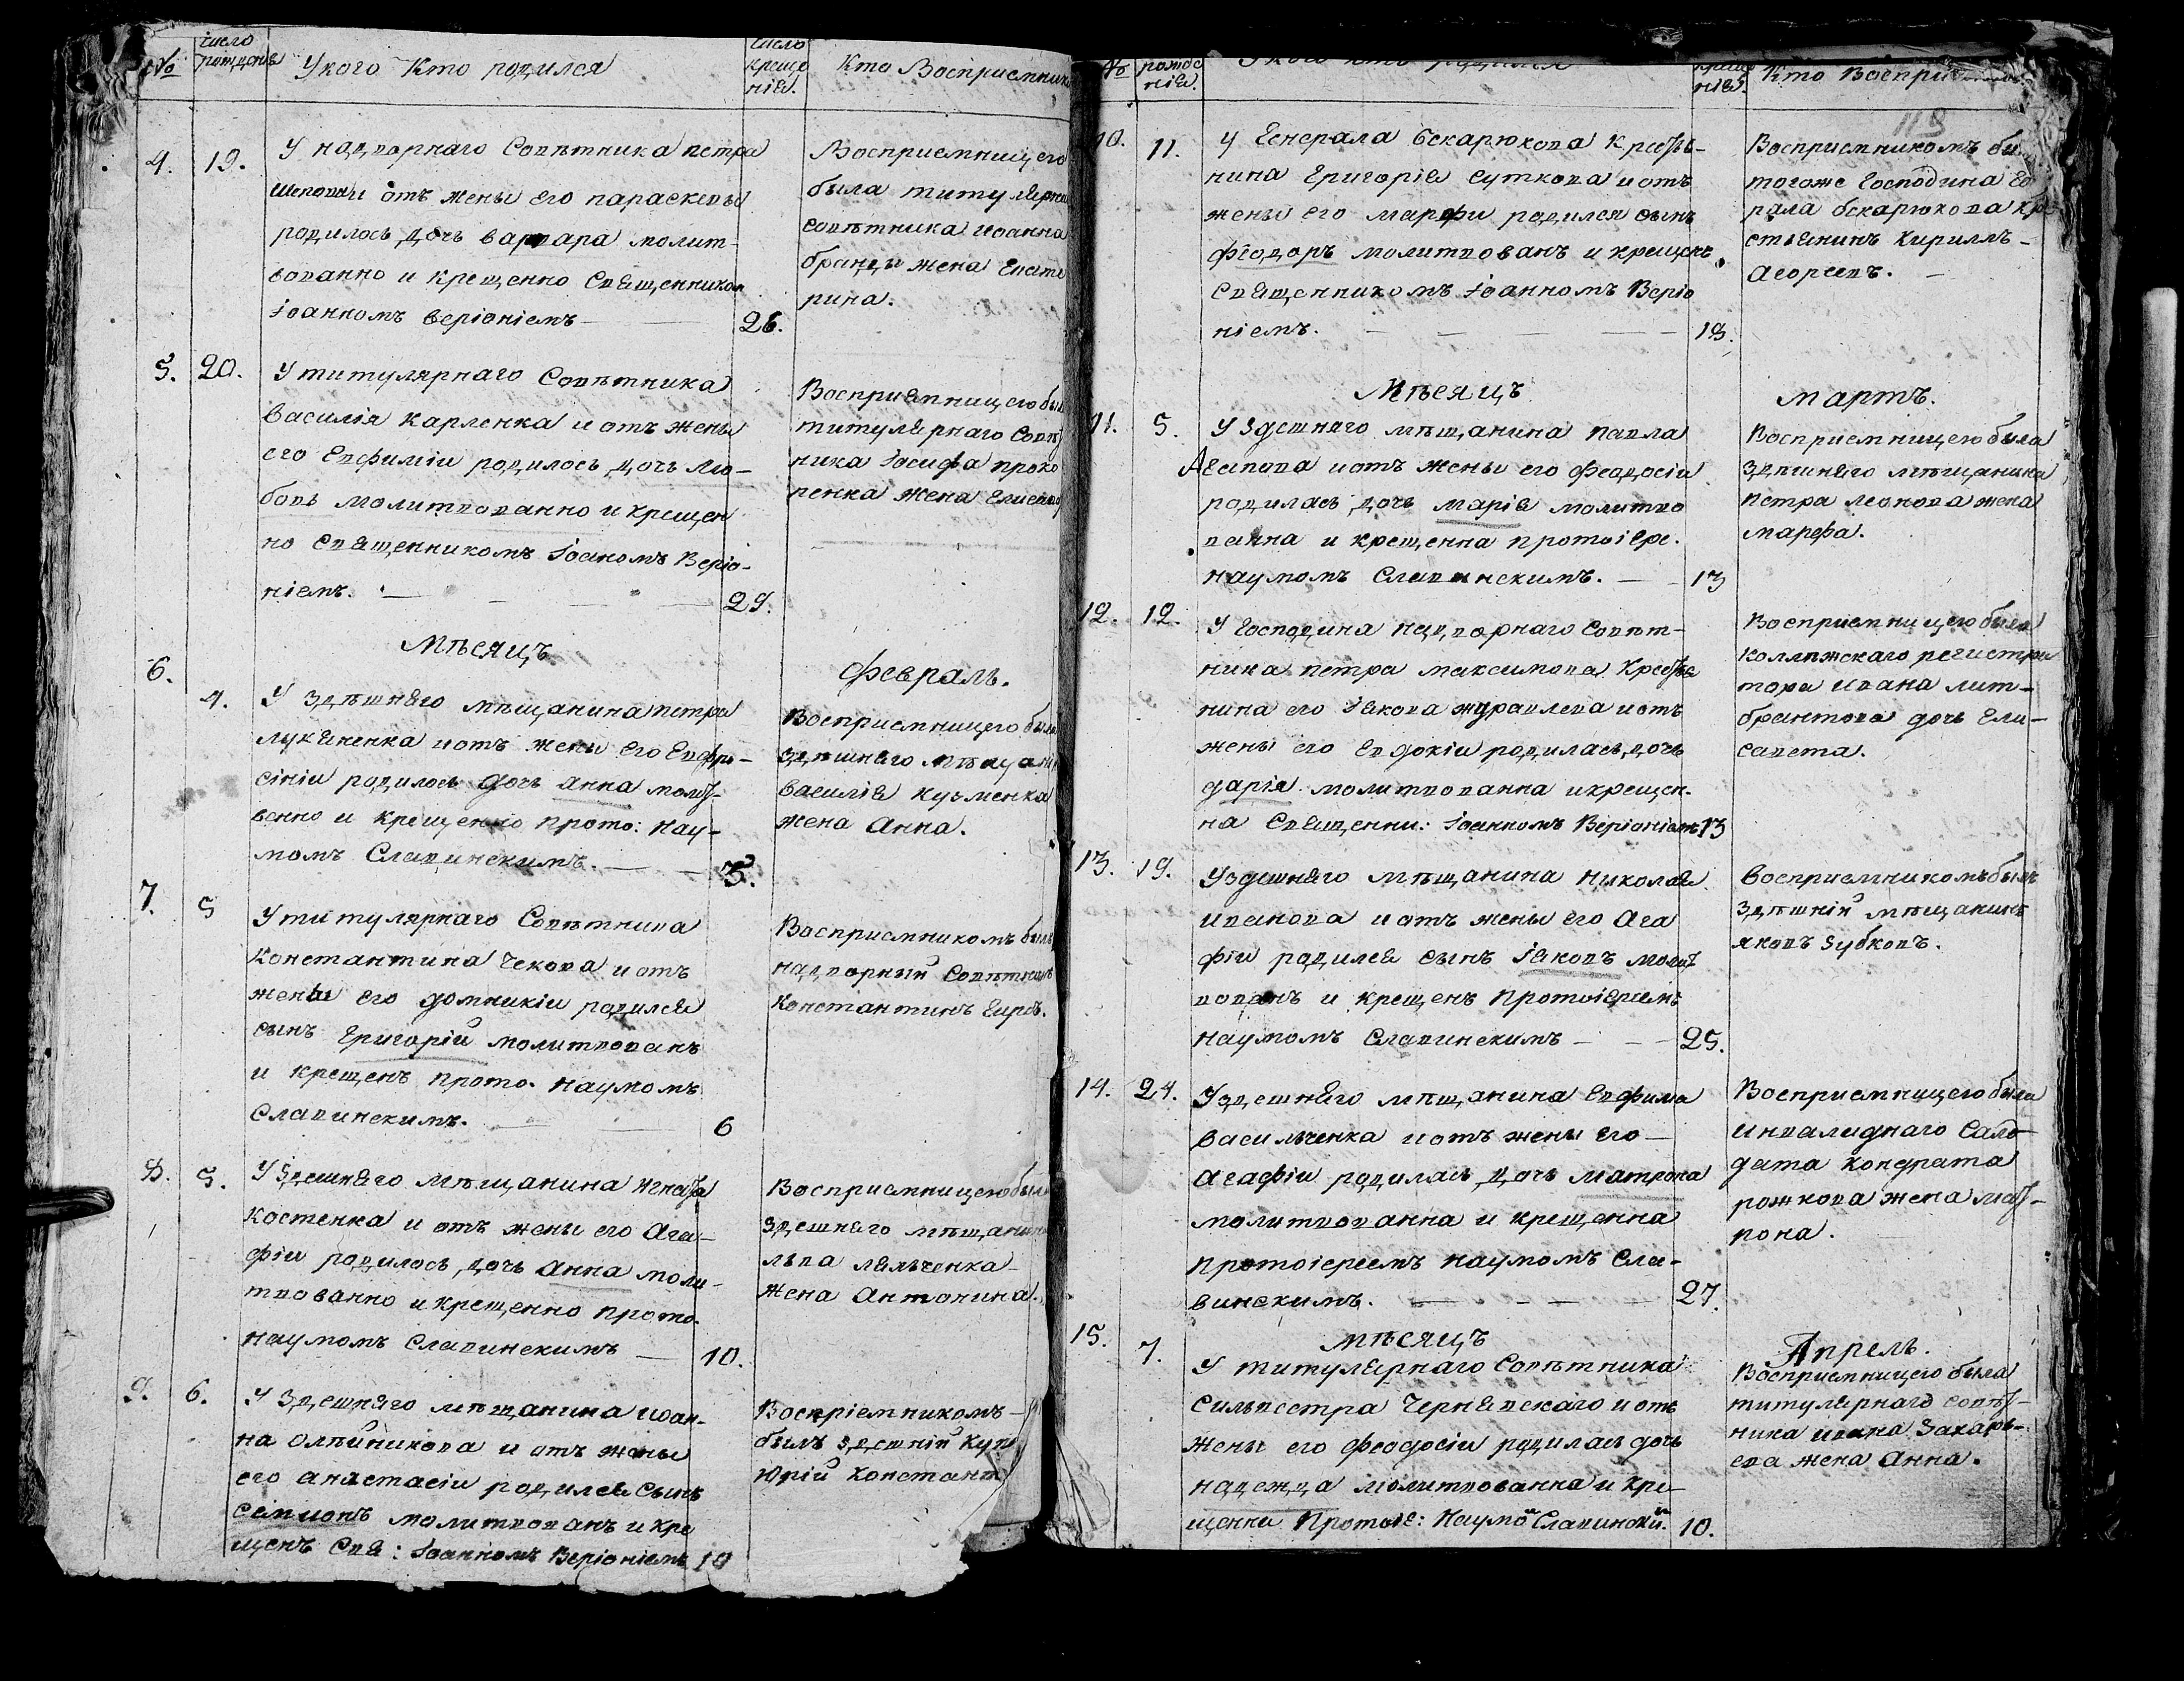 №
число
рожденія
У кого кто родился
число
креще
нія.
Кто Восприемники
4.
19.
У надворнаго Совѣтника петра
отъ жены его параскевы
родилось дочь варвара молит-
вованно и крещенно Священником
Іоанномъ веріоніемъ
26.
Восприемницею
была титулярна
совѣтника иоанна
жена Екате
рина.
5.
20.
У титулярнаго Совѣтника
василія карленка и отъ жены
его Евфиміи родилось дочь лю-
бовь молитвованно и крещен
но священникомъ Іоаномъ Веріо-
ніемъ.
29.
Восприемницею был
титулярнаго Совѣ
ника Іосифа проко
пенка жена
Мѣсяцъ
Февраль.
6.
4.
У здѣшняго мѣщанина петра
лукяненка и отъ жены его Евфро-
сініи родилось дочь анна молит-
венно и крещенно прото: Нау-
момъ Славинскимъ.
5.
Восприемницею был
здѣшняго мѣщани
василія кузменка
жена Анна.
7.
5
У титулярнаго Совѣтника
Константина Чекова и отъ
жены его домникіи родился
сынъ Григорій молитвованъ
и крещенъ прото. Наумомъ
Славинскимъ.
6
Восприемникомъ былъ
надворный Совѣтникъ
Константинъ
8.
5.
У здешняго мѣщанина
костенка и отъ жены его Ага-
фіи родилось дочь анна моли-
твованно и крещенно прото.
наумомъ Славинскимъ
10.
Восприемницею был
здешняго мѣщанин
льва лялченка
жена Антонина.
9.
6.
У здешняго мѣщанина иоан-
на олѣйникова и отъ жены
его анастасіи родился сынъ
молитвованъ и кре
щенъ Свя: Іоанномъ Веріоніемъ
10
Воспріемникомъ
былъ здешній куп
Юрій Констант
№
рожде
нія.
У кого кто родился
креще
нія
Кто Воспри
119
10.
11.
У Генерала бекарюкова кресть-
нина Григорія суткова и отъ
жены его марфи родился сынъ
Ѳѣодоръ молитвованъ и крещенъ
священникомъ Іоанномъ Веріо
ніемъ.
18.
Восприемникомъ бы
тогоже Господина Ге
рала бекарюкова кре
стьянинъ Кириллъ
Агореевъ.
Мѣсяцъ
Мартъ.
11.
5.
У здешняго мѣщанина павла
Асипова и отъ жены его Феодосіи
родилась дочь марія молитво
ванна и крещенна протоіере.
наумомъ Славинскимъ.
13
Восприемницею была
здѣшняго мѣщанина
петра леонова жена
марфа.
12.
12.
У Господина надворнаго Совѣт-
ника петра максимова Крестья
нина его Іякова журавлева и отъ
жены его Евдокіи родилась дочь
дарія молитвованна и крещен-
на Священни: Іоанномъ Веріоніемъ
13
Восприемницею была
коллѣжскаго регистра
тора ивана лит-
брантова дочь Ели-
савета.
13.
19.
У здешняго мѣщанина николая
иванова и отъ жены его Ага
фіи родился сынъ Іяковъ молит
вованъ и крещенъ протоіериемъ
наумомъ Славинскимъ
25.
Восприемникомъ былъ
здѣшній мѣщанинъ
яковъ зубковъ.
14.
24.
У здешняго мѣщанина Евфима
васильченка и отъ жены его
агафіи родилась дочь матрона
молитвованна и крещенна
протоіереемъ наумомъ Сла-
винскимъ.
27.
Восприемницею была
инвалиднаго Салд
дата кондрата
рожкова жена мат-
рона.
Мѣсяцъ
Апрель.
15.
7.
У титулярнаго Совѣтника
сильвестра Чернявскаго и отъ
жены его Феодосіи родилась дочь
надежда молитвованна и кре-
щенна Протоіе: Наумо Славинский.
10.
Восприемницею была
титулярнаго совѣт-
ника ивана Захарь-
ева жена Анна.